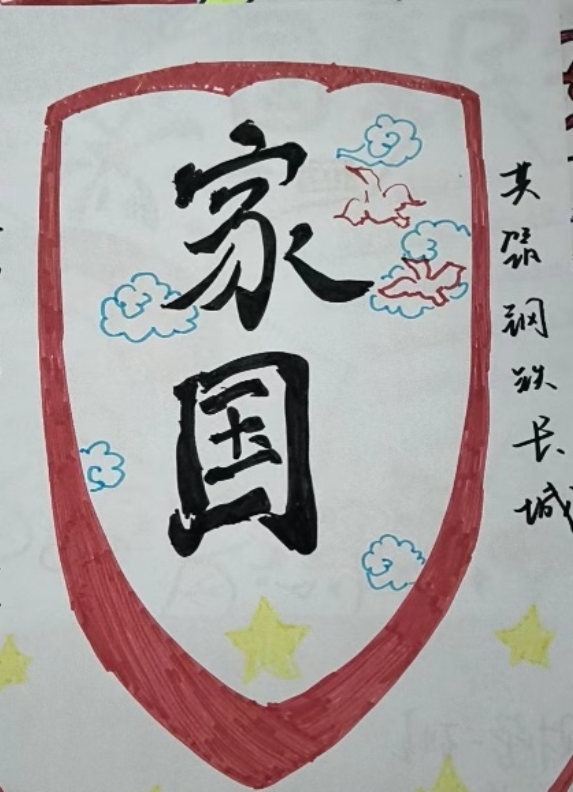 家国
共筑钢铁长城